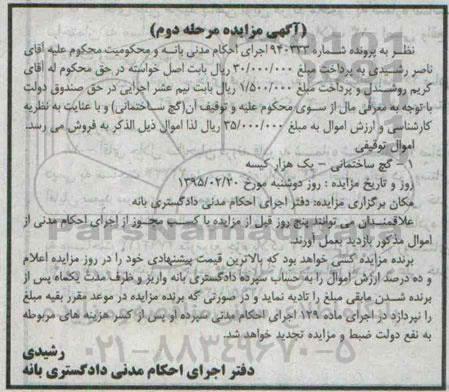 (آگهی مزایده مرحله دوم)
نظر به پرونده شماره ۹۴۰۳۳۳ اجرای احکام مدنی بانه و محکومیت محکوم علیه آقای
ناصر رشیدی به پرداخت مبلغ ۳۰/۰۰۰/۰۰۰ ریال بابت اصل خواسته در حق محکوم له آقای
کریم روشندل و پرداخت مبلغ ۱/۵۰۰/۰۰۰ ریال بابت نیم عشر اجرایی در حق صندوق دولت
با توجه به معرفی مال از سوی محکوم علیه و توقیف آن(گچ ساختمانی) و با عنایت به نظریه
کارشناسی و ارزش اموال به مبلغ ۳۵/۰۰۰/۰۰۰ ریال لذا اموال ذیل الذکر به فروش می رسد.
اموال توقیفی
۱- گچ ساختمانی - یک هزار کیسه
روز و تاریخ مزایده : روز دوشنبه مورخ ۱۳۹۵/۰۲/۲۰
مکان برگزاری مزایده: دفتر اجرای احکام مدنی دادگستری بانه
علاقمندان می توانند پنج روز قبل از مزایده با کسب مجوز از اجرای احکام مدنی از
اموال مذکور بازدید بعمل آورند.
برنده مزایده کسی خواهد بود که بالاترین قیمت پیشنهادی خود را در روز مزایده اعلام
و ده درصد ارزش اموال را به حساب سپرده دادگستری بانه واریز و ظرف مدت یکماه پس از
برنده شدن مابقی مبلغ را تادیه نماید و در صورتی که برنده مزایده در موعد مقرر بقیه مبلغ
را نپردازد در اجرای ماده ۱۲۹ اجرای احکام مدنی سپرده او پس از کسر هزینه های مربوطه
به نفع دولت ضبط و مزایده تجدید خواهد شد.
رشیدی
دفتر اجرای احکام مدنی دادگستری بانه
۰۲۱-۸۸۳۴۹۶۷۰-۵